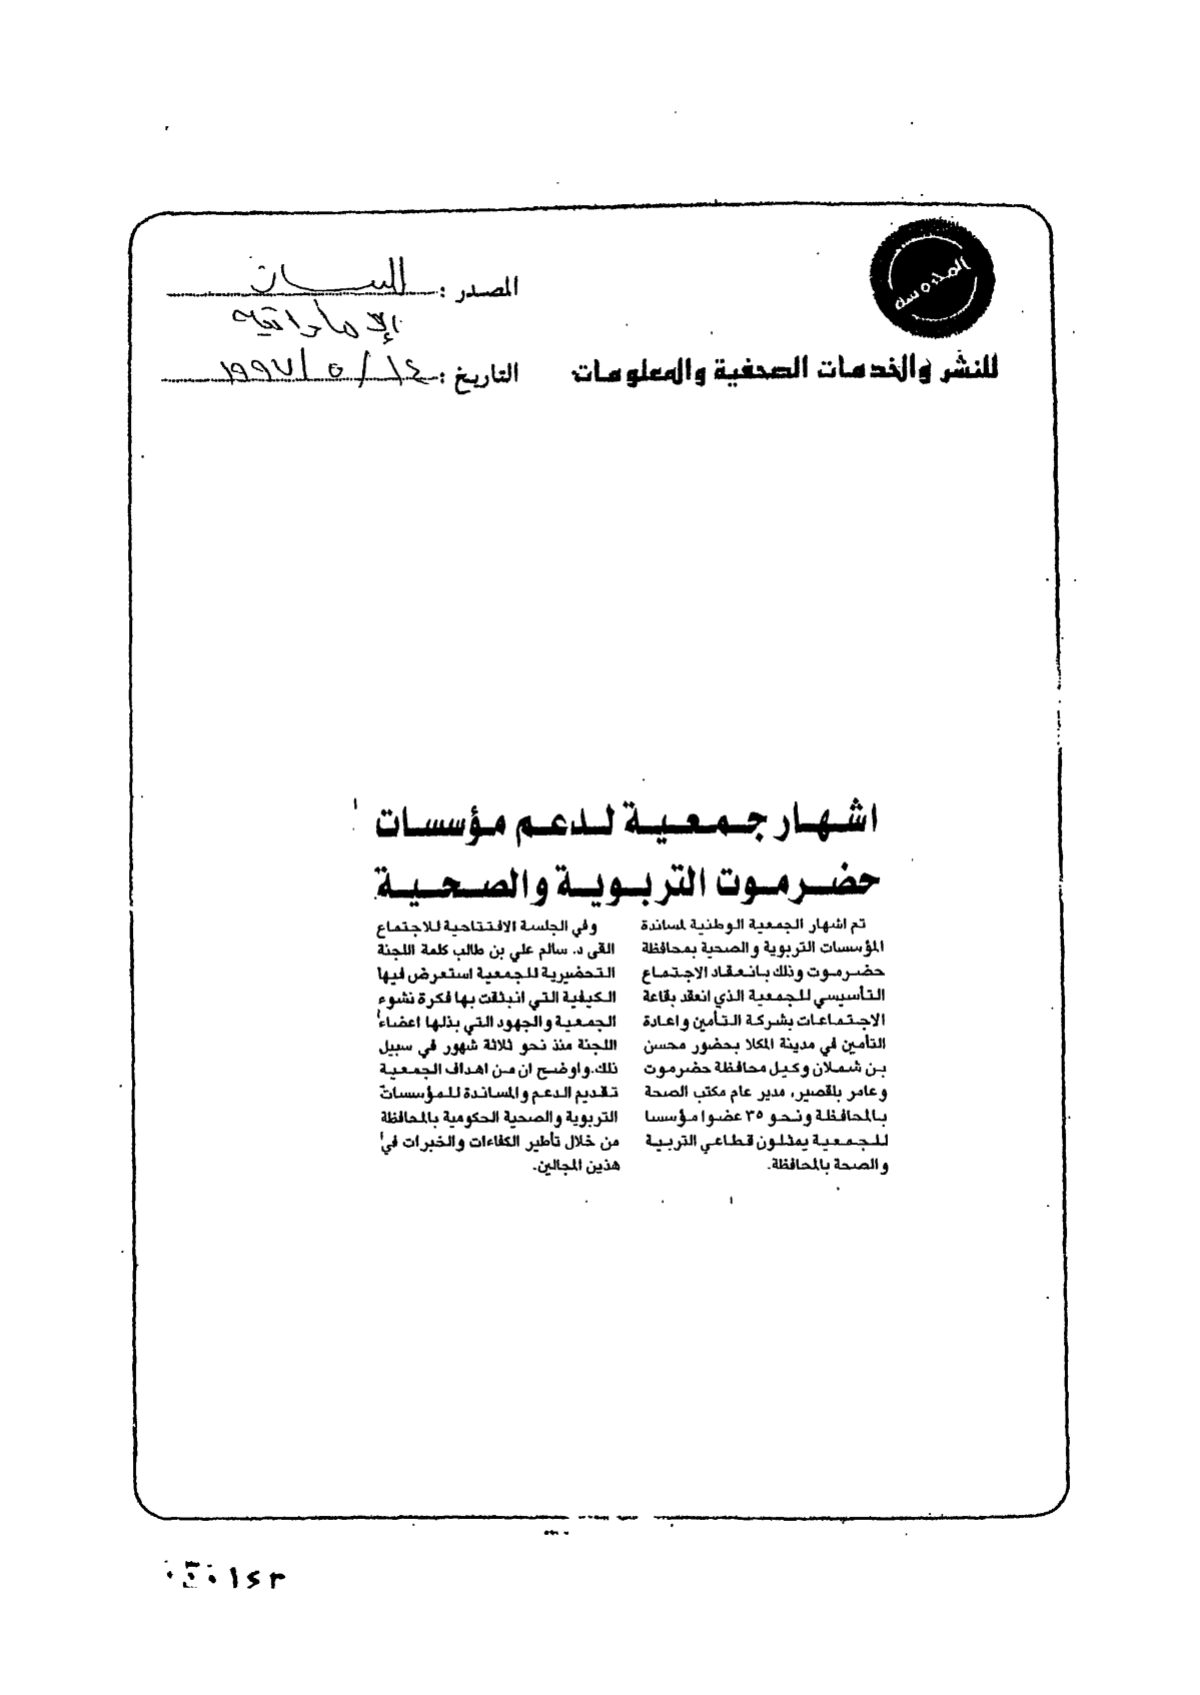 المحروسة
المصدر : البيان
الإماراتية
للنشر والخدمات الصحفية والمعلومات
التاريخ : ١٤ / ٥ / ١٩٩٧
اشهار جمعية لدعم مؤسسات
حضرموت التربوية والصحية
تم اشهار الجمعية الوطنية لمساندة
المؤسسات التربوية والصحية بمحافظة
حضرموت وذلك بانعقاد الاجتماع
التأسيسي للجمعية الذي انعقد بقاعة
الاجتماعات بشركة التأمين واعادة
التأمين في مدينة المكلا بحضور محسن
بن شملان وكيل محافظة حضرموت
وعامر بلقصير، مدير عام مكتب الصحة
بالمحافظة ونحو ٣٥ عضوا مؤسسا
للجمعية يمثلون قطاعي التربية
والصحة بالمحافظة.
وفي الجلسة الافتتاحية للاجتماع
القى د. سالم علي بن طالب كلمة اللجنة
التحضيرية للجمعية استعرض فيها
الكيفية التي انبثقت بها فكرة نشوء
الجمعية والجهود التي بذلها اعضاء
اللجنة منذ نحو ثلاثة شهور في سبيل
ذلك.واوضح ان من اهداف الجمعية
تقديم الدعم والمساندة للمؤسسات
التربوية والصحية الحكومية بالمحافظة
من خلال تأطير الكفاءات والخبرات في
هذين المجالين.